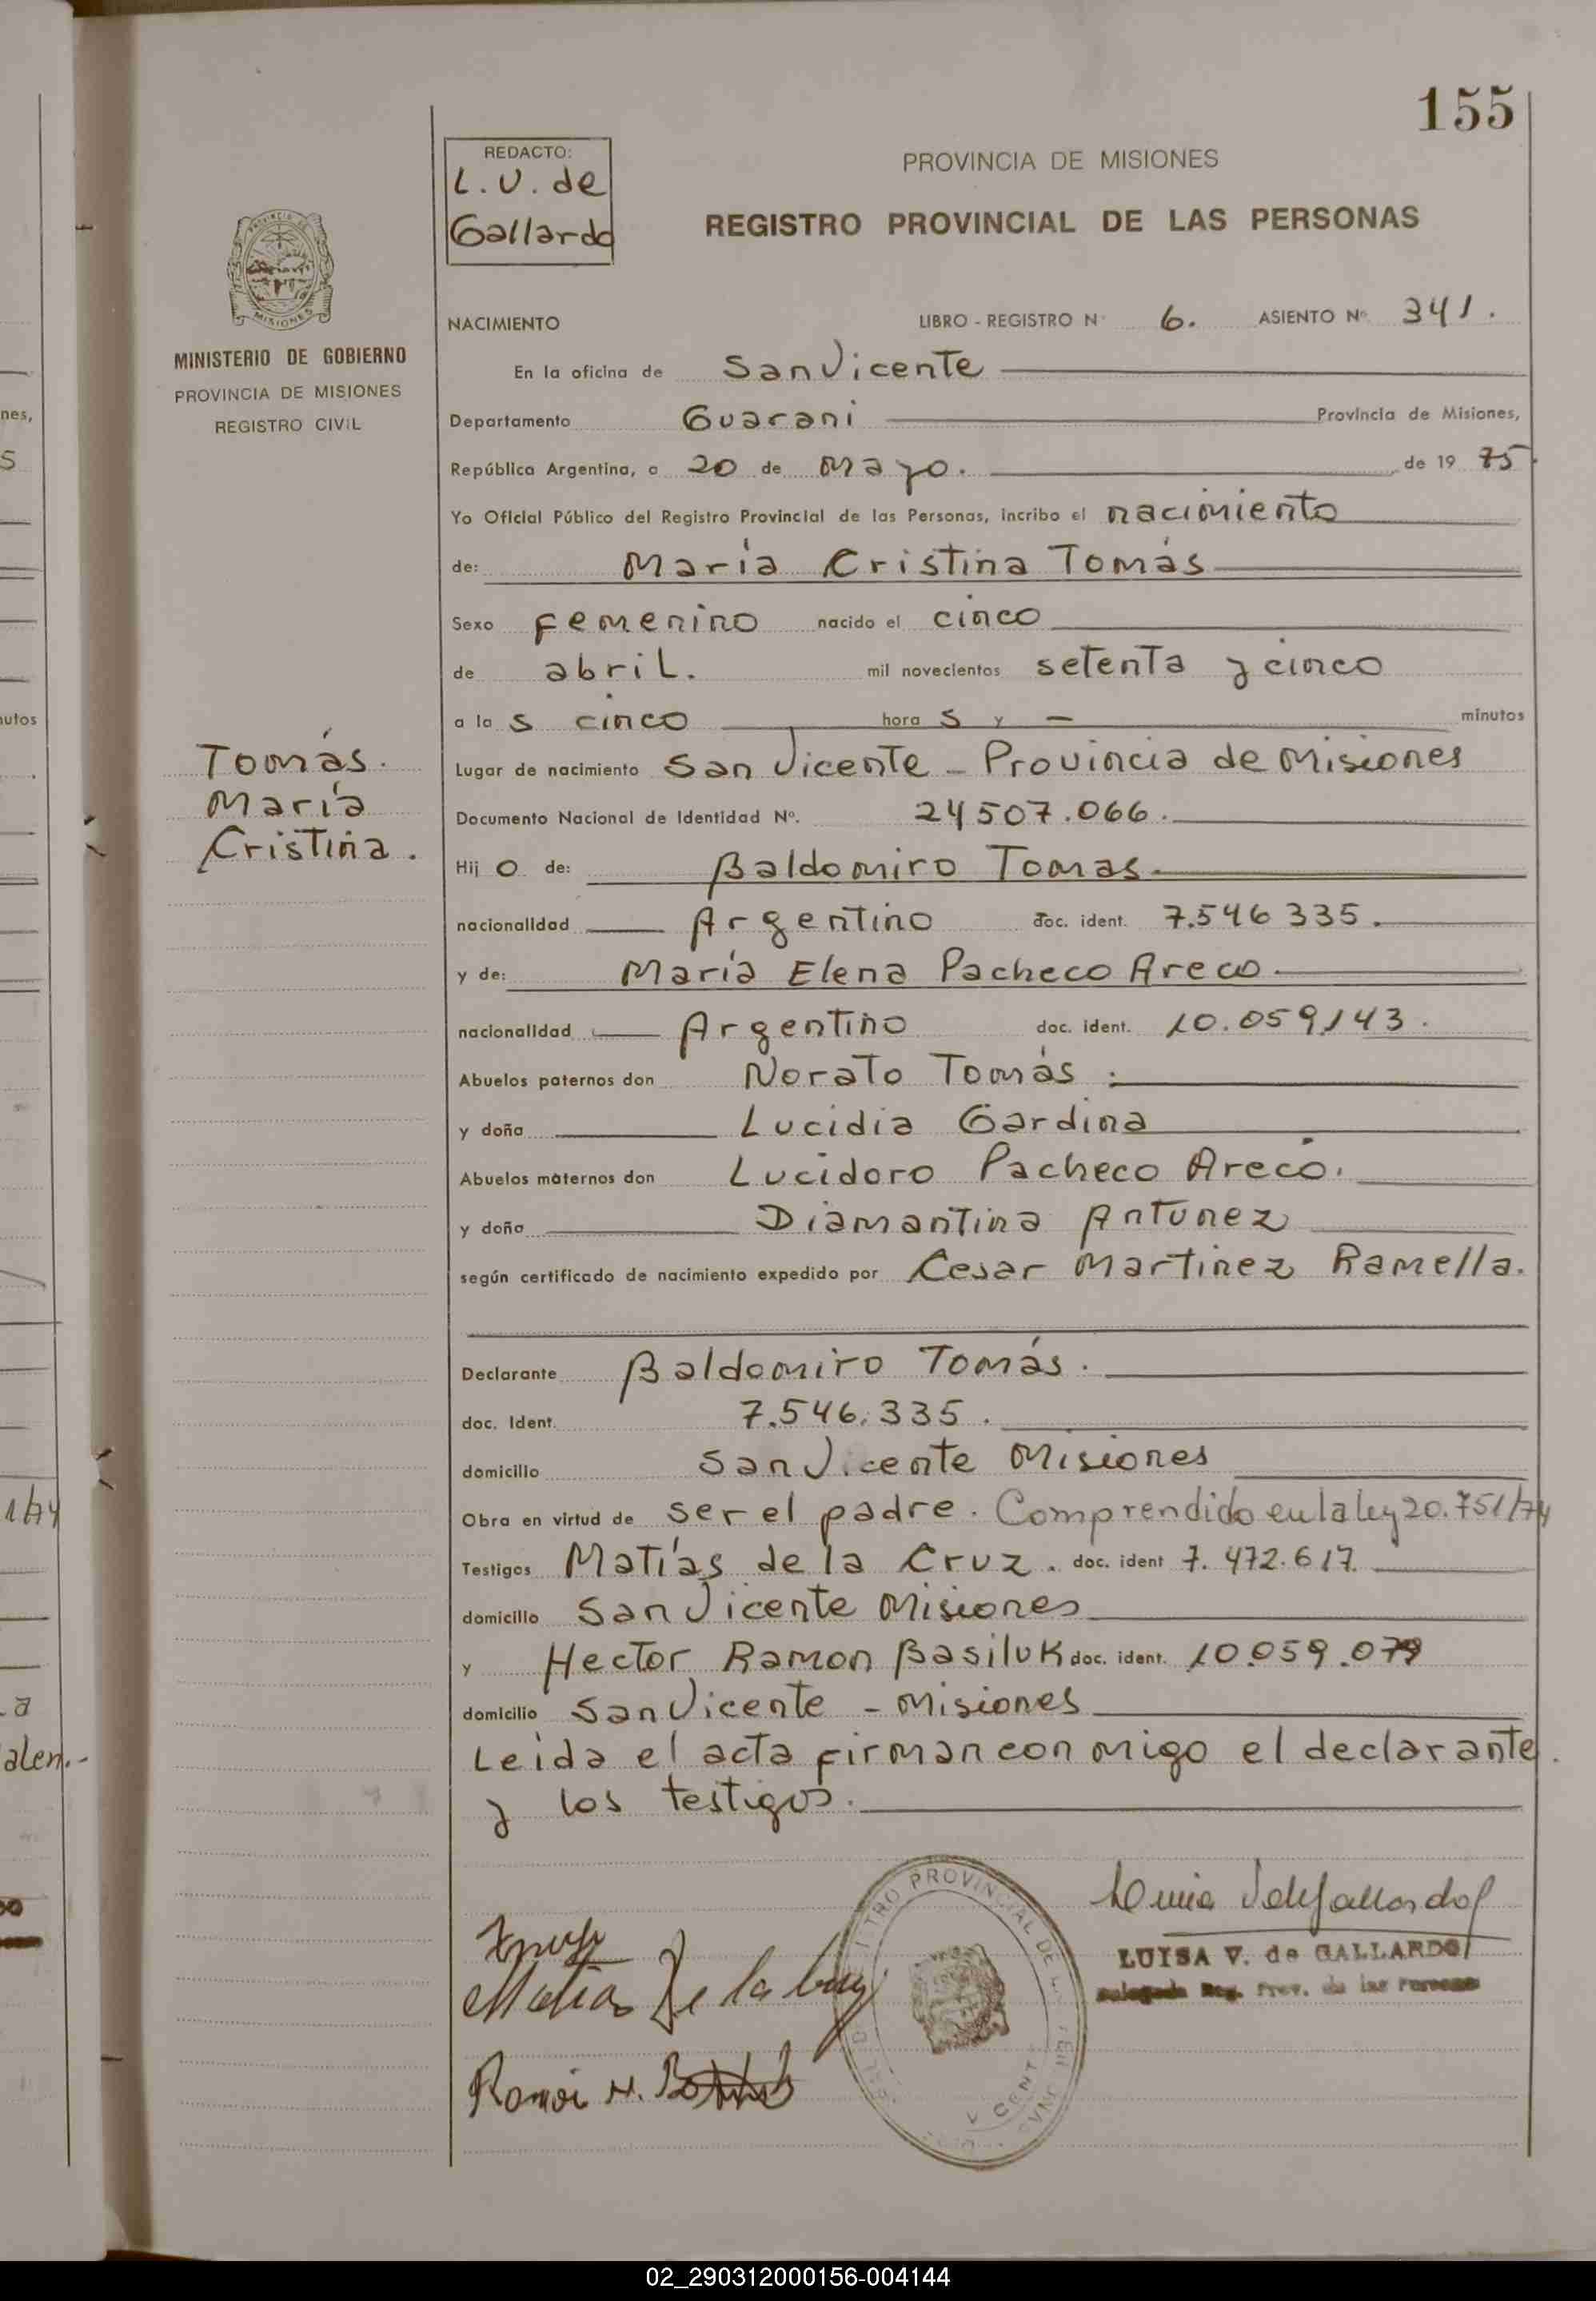 155
REDACTO:
L. V. de
Gallardo
PROVINCIA DE MISIONES
REGISTRO PROVINCIAL DE LAS PERSONAS
MISIONES
MINISTERIO DE GOBIERNO
PROVINCIA DE MISIONES
REGISTRO CIVIL
NACIMIENTO LIBRO - REGISTRO Nº 6. ASIENTO Nº 341.
En la oficina de San Vicente
Departamento Guarani Provincia de Misiones,
República Argentina, a 20 de Mayo. de 19 75
Yo Oficial Público del Registro Provincial de las Personas, incribo el nacimiento
de: María Cristina Tomás
Sexo Femenino nacido el cinco
de abril. mil novecientos setenta y cinco
a la s cinco hora s y — minutos
Lugar de nacimiento San Vicente - Provincia de Misiones
Documento Nacional de Identidad Nº. 24507.066.
Tomás.
María
Cristina.
Hij o de: Baldomiro Tomas.
nacionalidad Argentino doc. ident. 7.546 335.
y de: María Elena Pacheco Areco.
nacionalidad Argentino doc. ident. 10.059.143.
Abuelos paternos don Norato Tomás.
y doña Lucidia Gardina
Abuelos maternos don Lucidoro Pacheco Areco.
y doña Diamantina Antunez
según certificado de nacimiento expedido por Cesar Martinez Ramella.
Declarante Baldomiro Tomás.
doc. Ident. 7.546.335.
domicilio San Vicente Misiones
Obra en virtud de ser el padre. Comprendido en la ley 20.751/74
Testigos Matías de la Cruz. doc. ident 7.472.617.
domicilio San Vicente Misiones
y Hector Ramon Basiluk doc. ident. 10.059.079
domicilio San Vicente - Misiones
Leida el acta firman con migo el declarante.
y los testigos.
LUISA V. de GALLARDO
Delegada Reg. Prov. de las Personas
Matias De la Cruz
Ramón H.
02_290312000156-004144